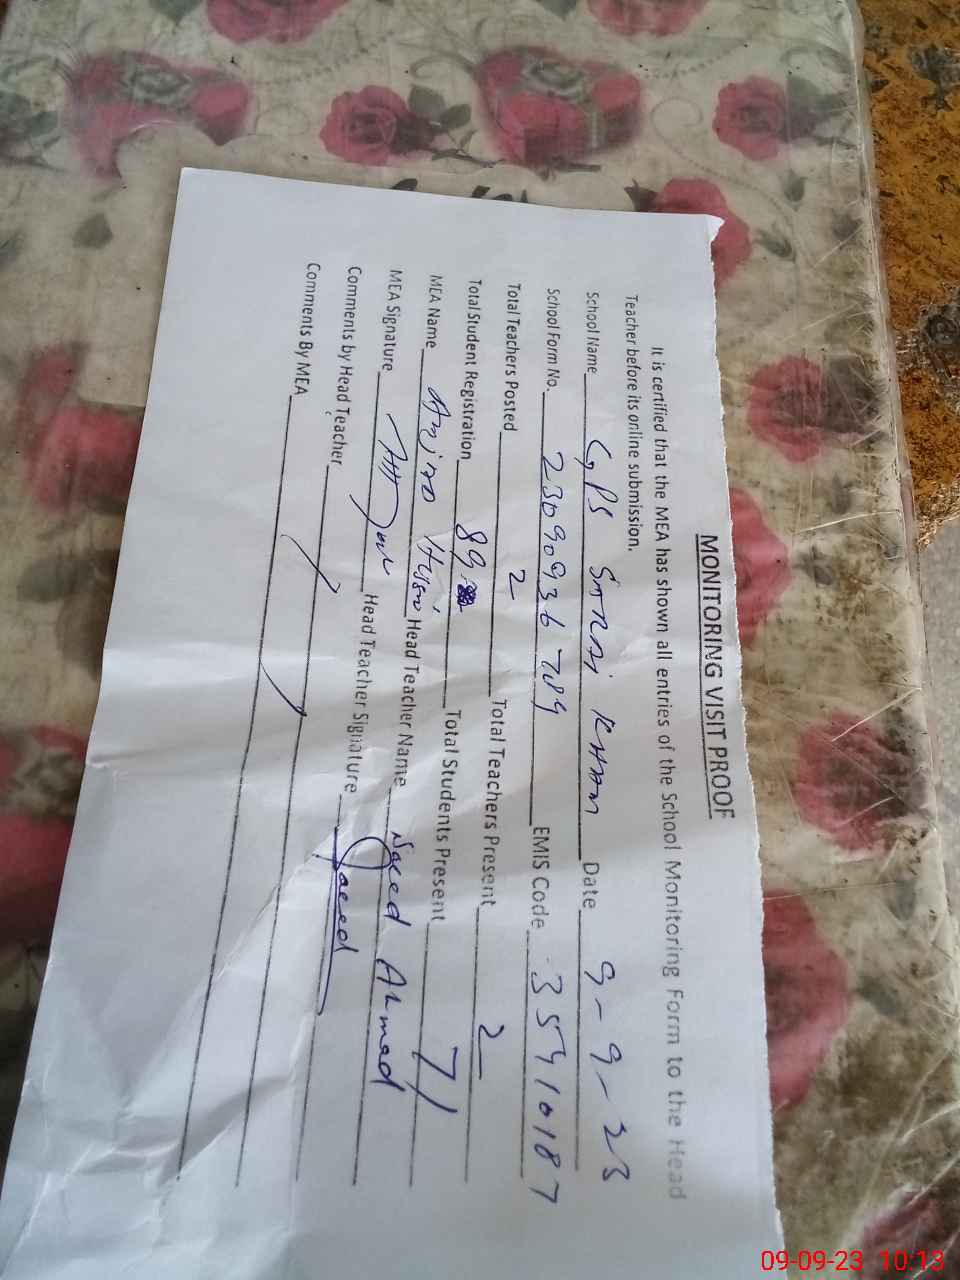 MONITORING VISIT PROOF
It is certified that the MEA has shown all entries of the School Monitoring Form to the Head
Teacher before its online submission.
School Name GPS SARAI KHAN Date 9-9-23
School Form No. 2309093b789 EMIS Code 35410187
Total Teachers Posted 2 Total Teachers Present 2
Total Student Registration 89 Total Students Present 71
MEA Name Head Teacher Name Saeed Ahmad
MEA Signature Head Teacher Signature Saeed
Comments by Head Teacher
Comments By MEA
09-09-23 10:13